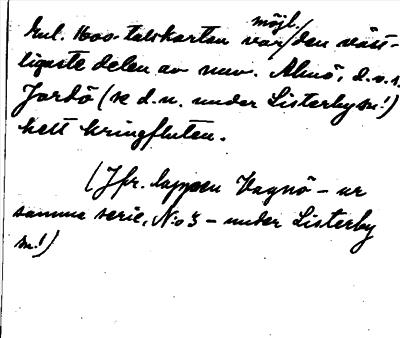 möjl.
Enl. 1600-talskartan var/den väst-
ligaste delen av nuv. Almö, d.v.s.
Jordö (se d.n. under Listerby sn!)
helt kringfluten.
(Jfr. lappen Vagnö - ur
samma serie, No 3 - under Listerby
sn!)